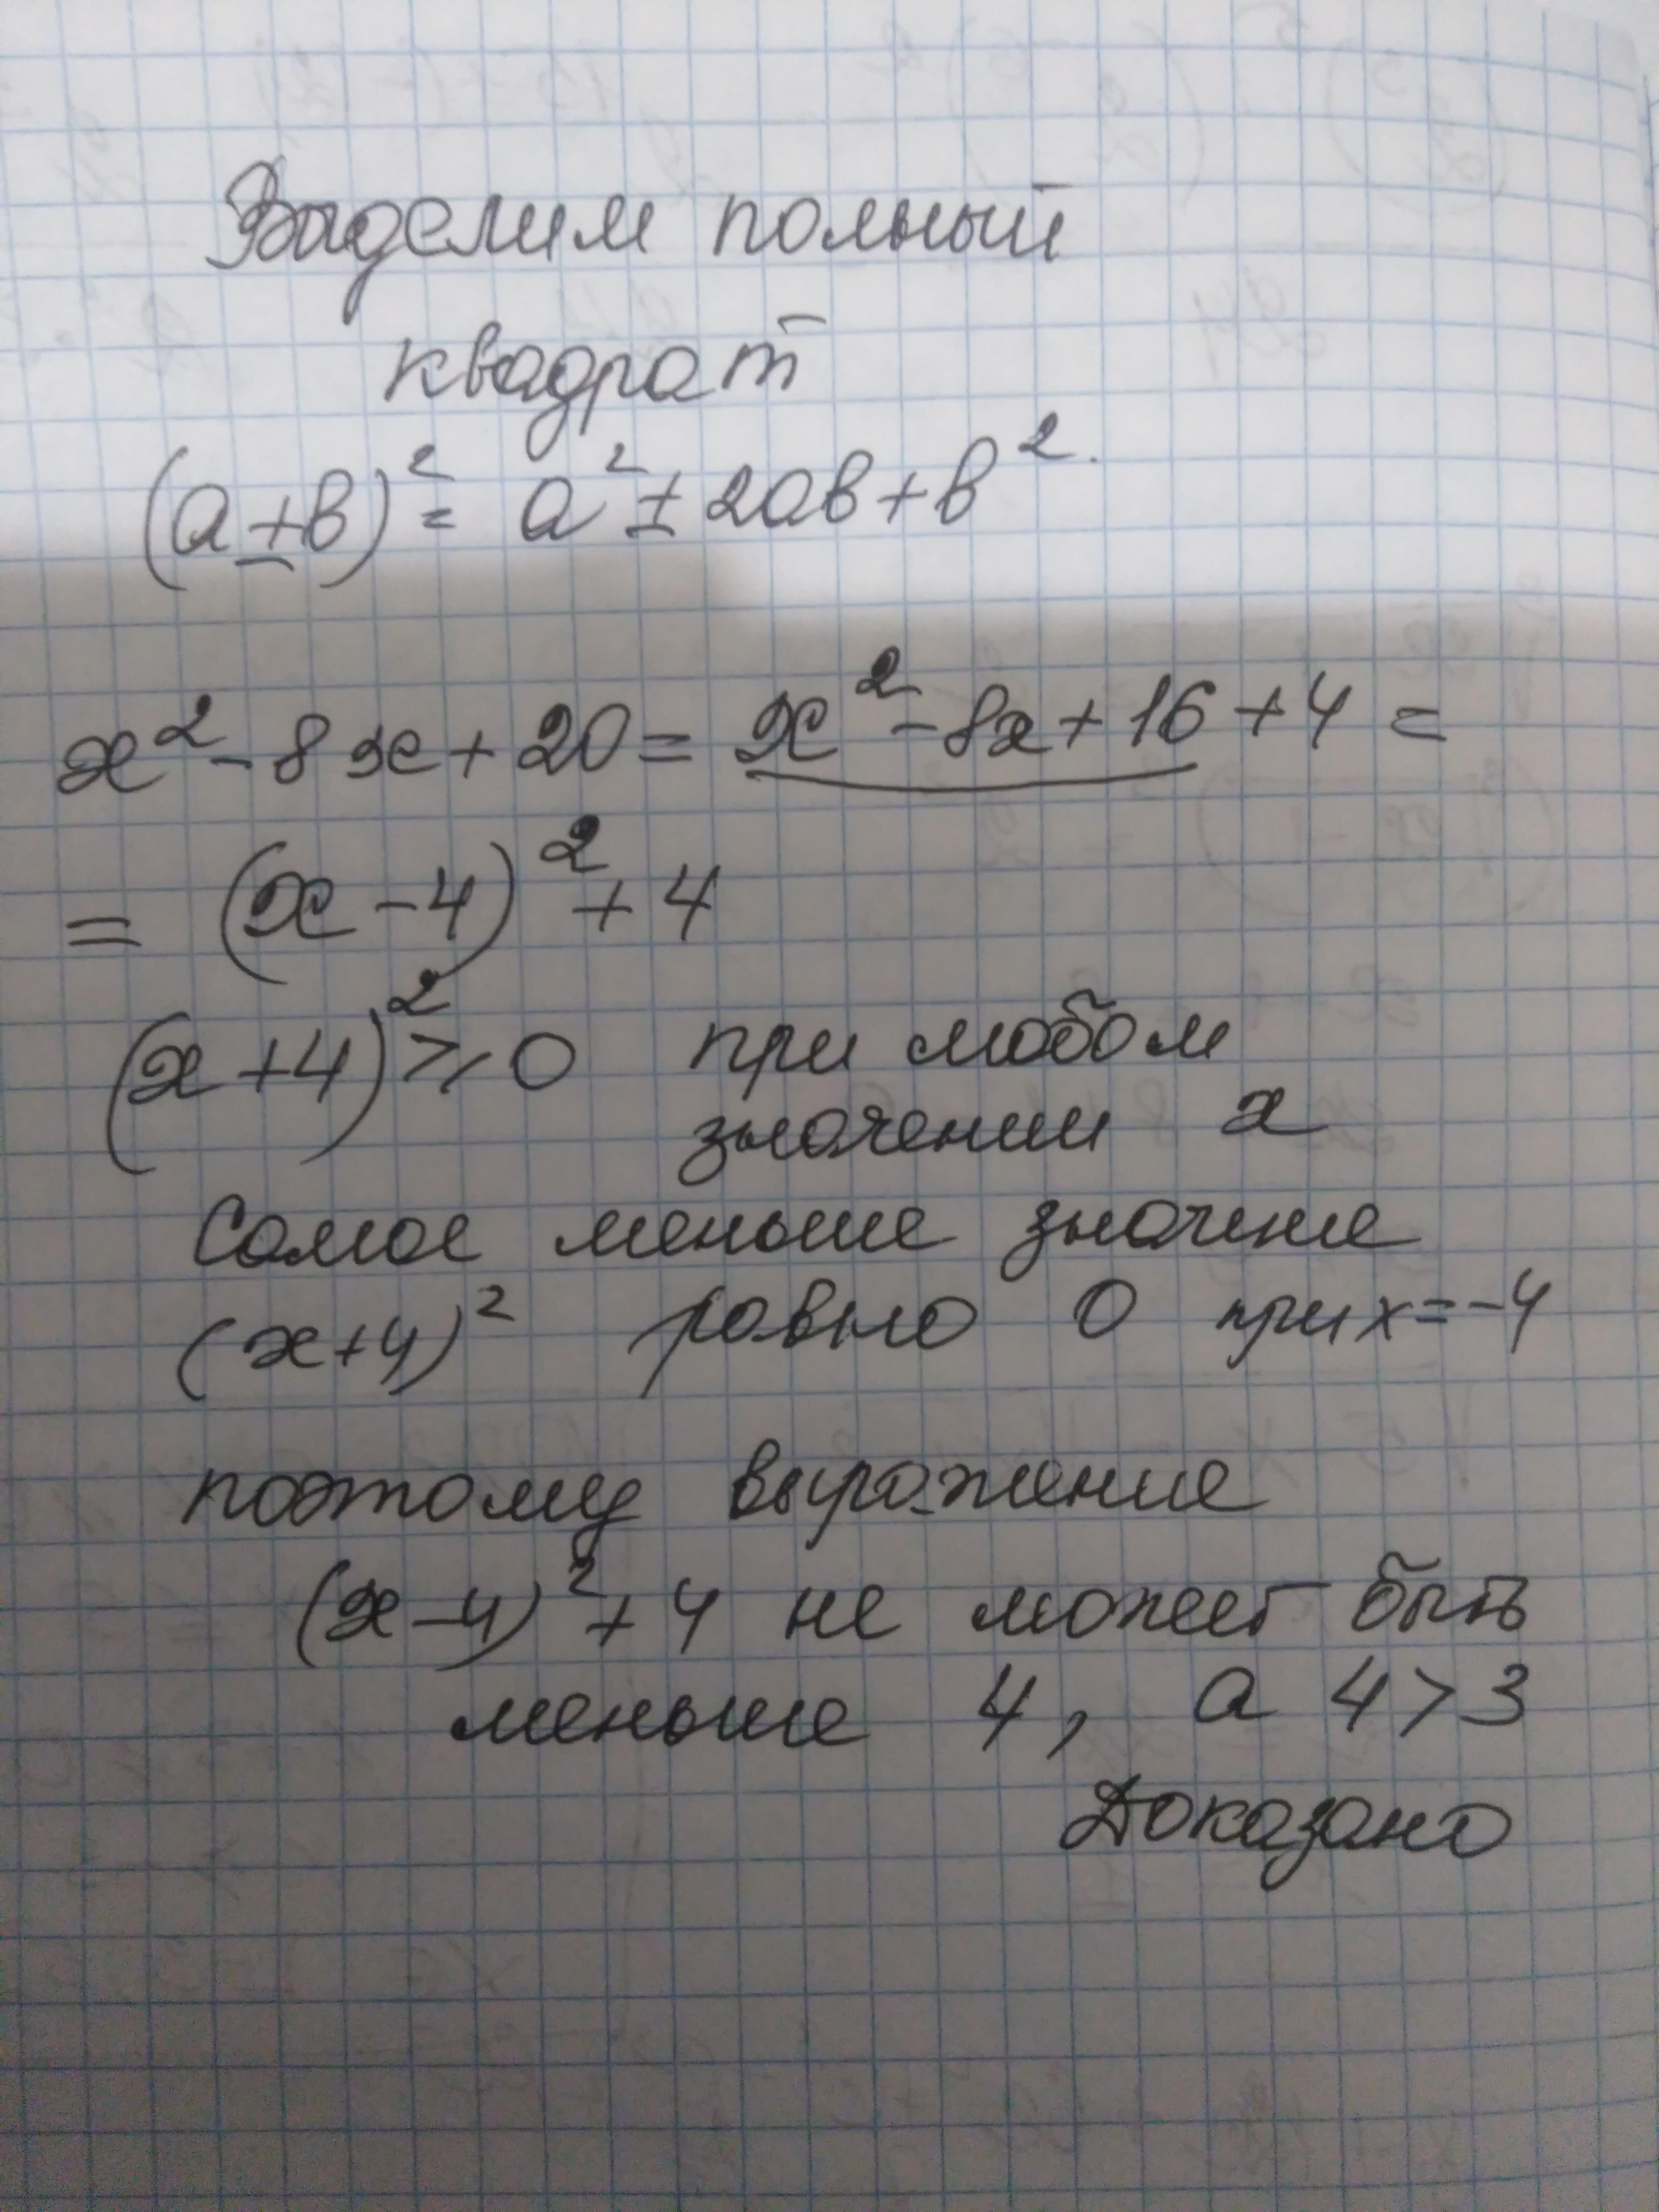 Выделим полный
квадрат
(a±b)² = a² ± 2ab + b².
x² - 8x + 20 = x² - 8x + 16 + 4 =
= (x - 4)² + 4
(x + 4)² ≥ 0 при любом
значении x
Самое меньше значение
(x+4)² равно 0 при x = -4
поэтому выражение
(x-4)² + 4 не может быть
меньше 4, а 4 > 3
Доказано